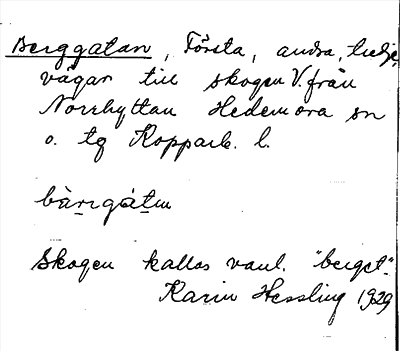 Berggatan, Första, andra, tredje,
vägar till skogen V. från
Norrhyttan Hedemora sn
o. tg Kopparb. l.
bàrrgátm
Skogen kallas vanl. "berget".
Karin Hessling 1929